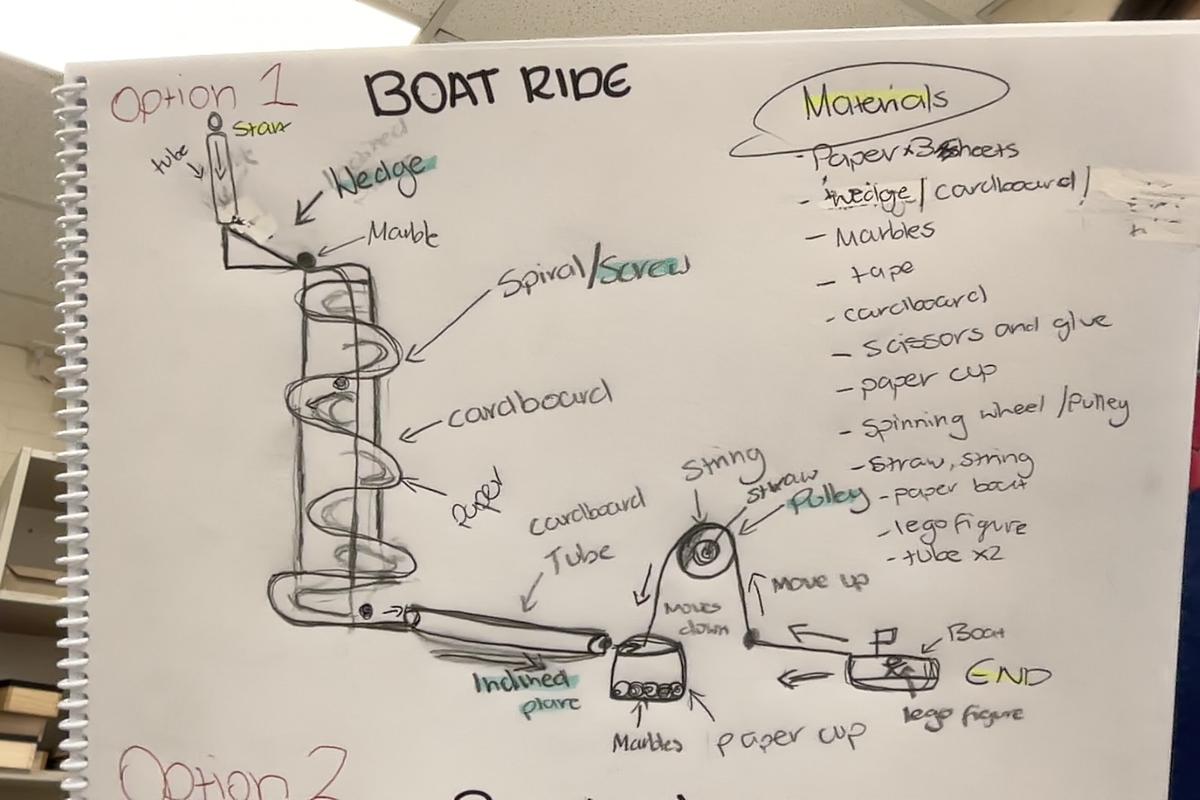 Option 1
BOAT RIDE
Start
tube
Wedge
Marble
Spiral/Screw
cardboard
paper
cardboard
Tube
Inclined
plane
String
straw
Pulley
Moves
down
Move up
Boat
END
lego figure
Marbles
paper cup
Materials
- Paper x3 sheets
- wedge/cardboard/
- Marbles
- tape
- cardboard
- scissors and glue
- paper cup
- spinning wheel /pulley
- straw, string
- paper boat
- lego figure
- tube x2
Option 2